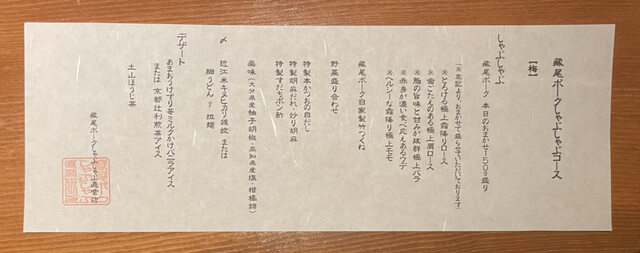 蔵尾ポークしゃぶしゃぶコース
【梅】
しゃぶしゃぶ
蔵尾ポーク 本日のおまかせ150g盛り
(※左記より、おまかせで盛らせていただいております)
※とろける極上霜降りロース
※歯ごたえのある極上肩ロース
※脂の旨味と甘みが抜群極上バラ
※赤身が濃い食べ応えあるウデ
※ヘルシーな霜降り極上モモ
蔵尾ポーク自家製竹つくね
野菜盛り合わせ
特製本かつおの白だし
特製胡麻だれ、炒り胡麻
特製すだちポン酢
薬味(大分県産柚子胡椒・高知県産塩・柑橘類)
〆
近江米キヌヒカリ雑炊 または
細うどん or 拉麺
デザート
あまおうけずり苺ミルクかけバニラアイス
または 京都辻利煎茶アイス
土山ほうじ茶
蔵尾ポークしゃぶしゃぶ直営店